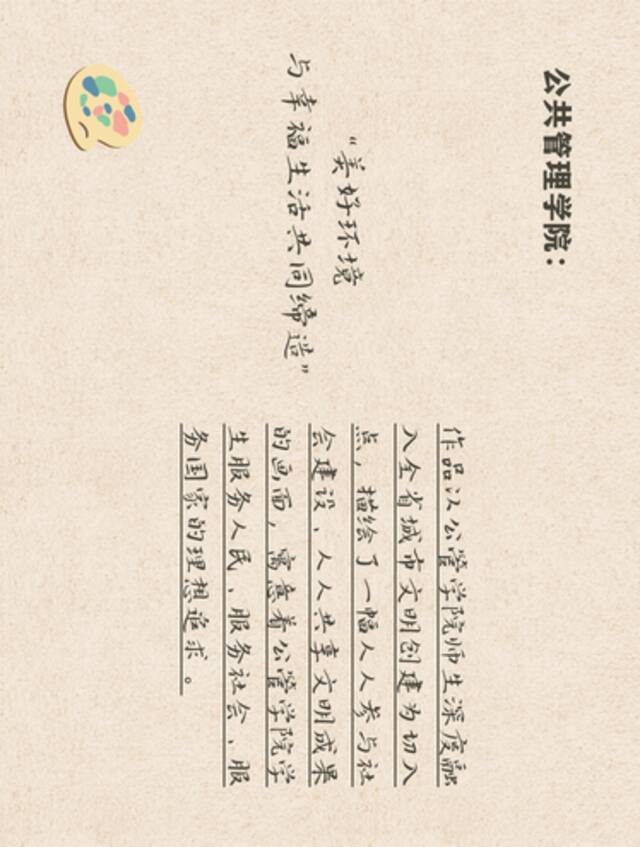 公共管理学院：
“美好环境
与幸福生活共同缔造”
作品以公管学院师生深度融
入全省城市文明创建为切入
点，描绘了一幅人人参与社
会建设、人人共享文明成果
的画面，寓意着公管学院学
生服务人民、服务社会、服
务国家的理想追求。